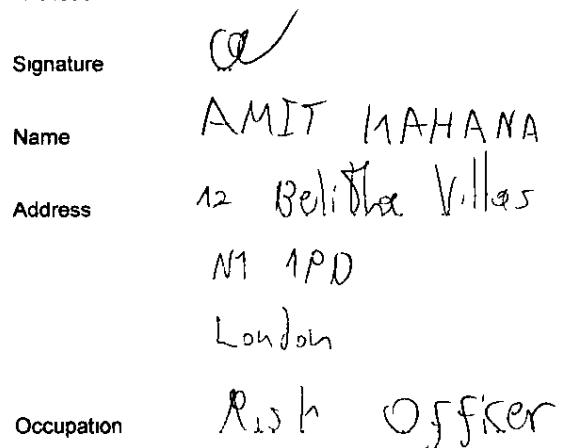 Signature
Name AMIT MAHANA
Address 12 Belitha Villas
N1 1PD
London
Occupation Risk Officer